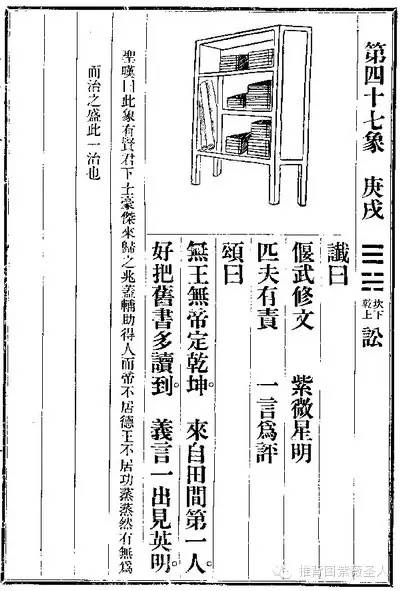 第四十七象 庚戌 坎下 乾上 訟
讖曰
偃武修文 紫微星明
匹夫有責 一言為評
頌曰
無王無帝定乾坤。 來自田間第一人。
好把舊書多讀到。 義言一出見英明。
聖嘆曰此象有賢君下士豪傑來歸之兆蓋輔助得人而帝不居德王不居功蒸蒸然有無為
而治之盛此一治也
推背图紫薇圣人